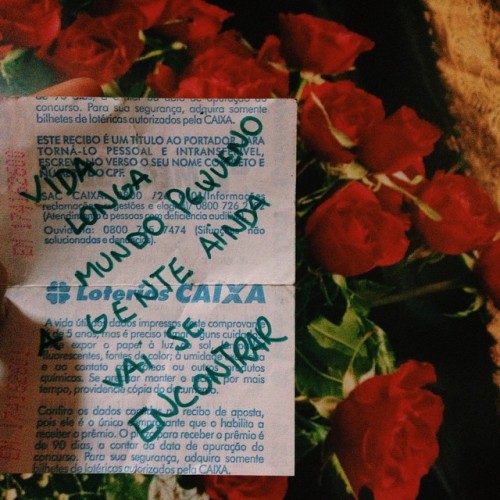 concurso. Para sua segurança, adquira somente
bilhetes de lotéricas autorizados pela CAIXA.
ESTE RECIBO É UM TÍTULO AO PORTADOR. PARA
TORNÁ-LO PESSOAL E INTRANSFERÍVEL,
ESCREVA NO VERSO O SEU NOME COMPLETO E
NÚMERO DO CPF.
SAC CAIXA: 0800 (Informações
reclamações sugestões e elogios) 0800 726 2
(Atendimento a pessoas com deficiência auditiva)
Ouvidoria: 0800 7474 (Situações não
solucionadas e denúncias).
VIDA
LONGA
MUNDO PEQUENO
A GENTE AINDA
VAI SE
ENCONTRAR
Loterias CAIXA
A vida útil dados impressos neste comprovante
de 5 anos, mas é preciso tomar alguns cuidados:
expor o papel à luz sol e
fluorescentes, fontes de calor; à umidade
e ao contato com plásticos ou outros produtos
químicos. Se manter por mais
tempo, providencie cópia do documento.
Confira os dados com recibo de aposta,
pois ele é o único comprovante que o habilita a
receber o prêmio. O prazo para receber o prêmio é
de 90 dias, a contar da data de apuração do
concurso. Para sua segurança, adquira somente
bilhetes de lotéricas autorizados pela CAIXA.